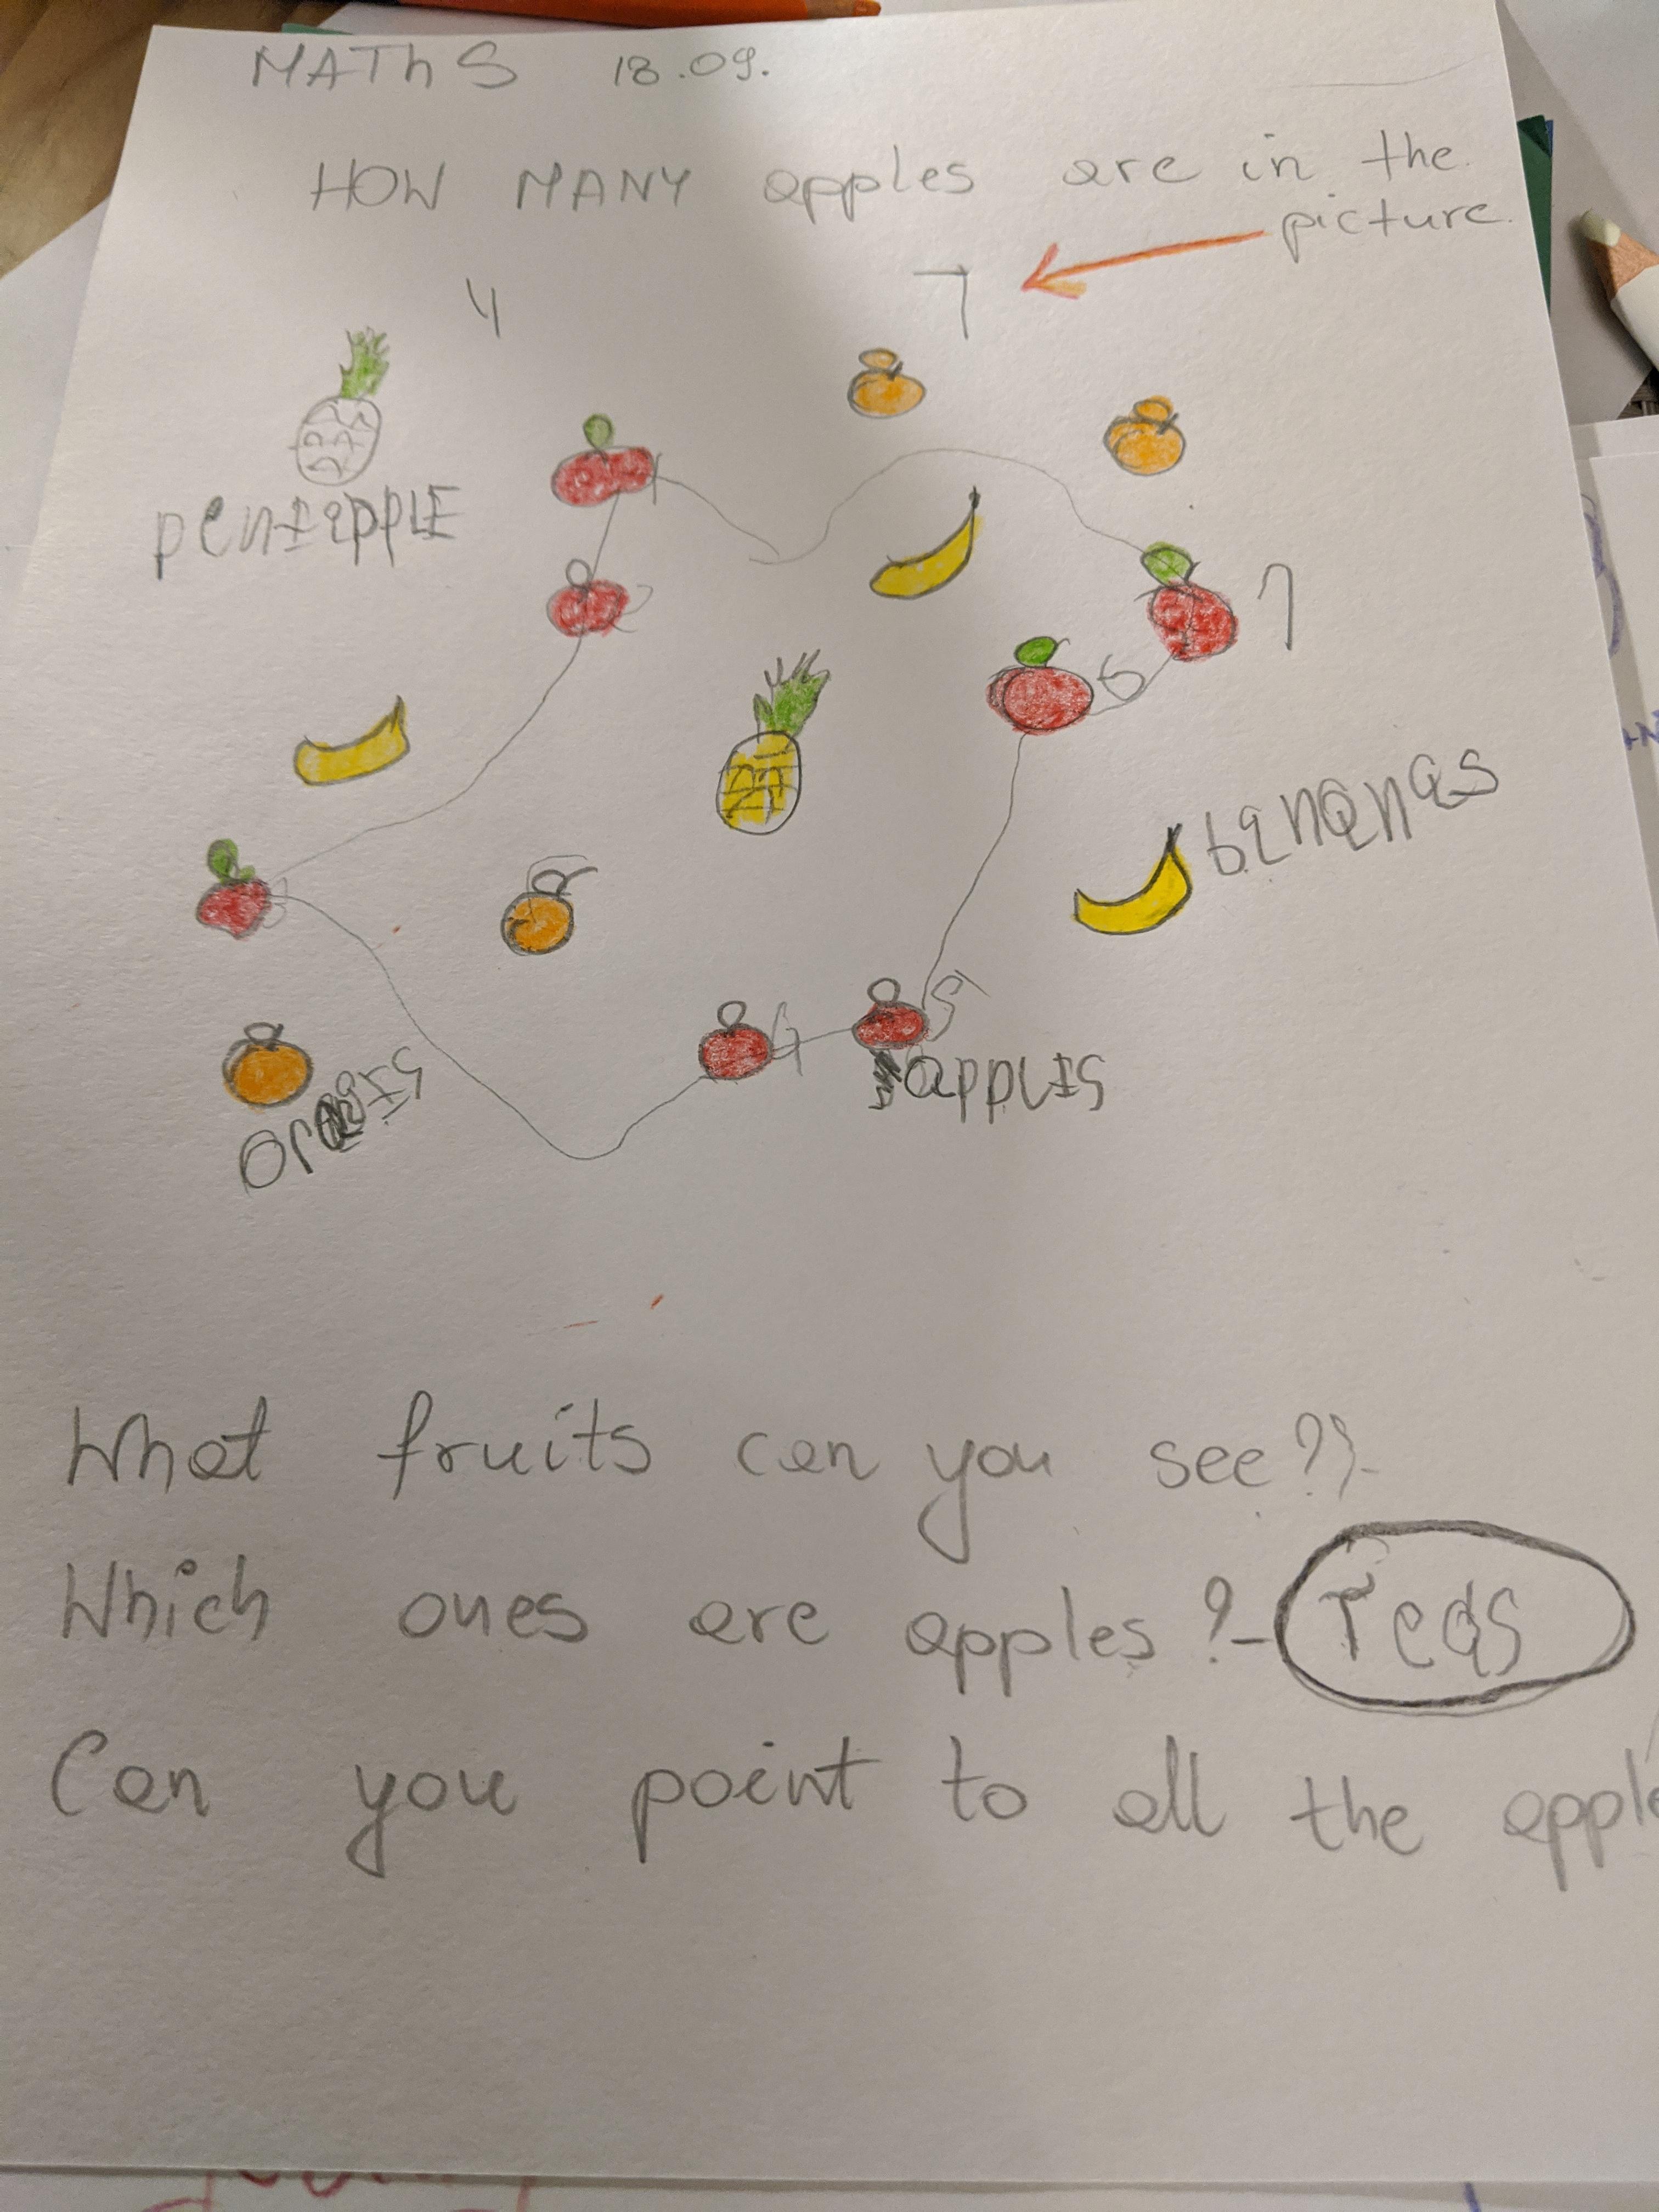 MATHS 18.09.
HOW MANY apples are in the
picture.
4 7
penIapplE
1
2
7
6
bananas
3
4 5
applIS
What fruits can you see??
Which ones are apples? - reds
Can you point to all the apple